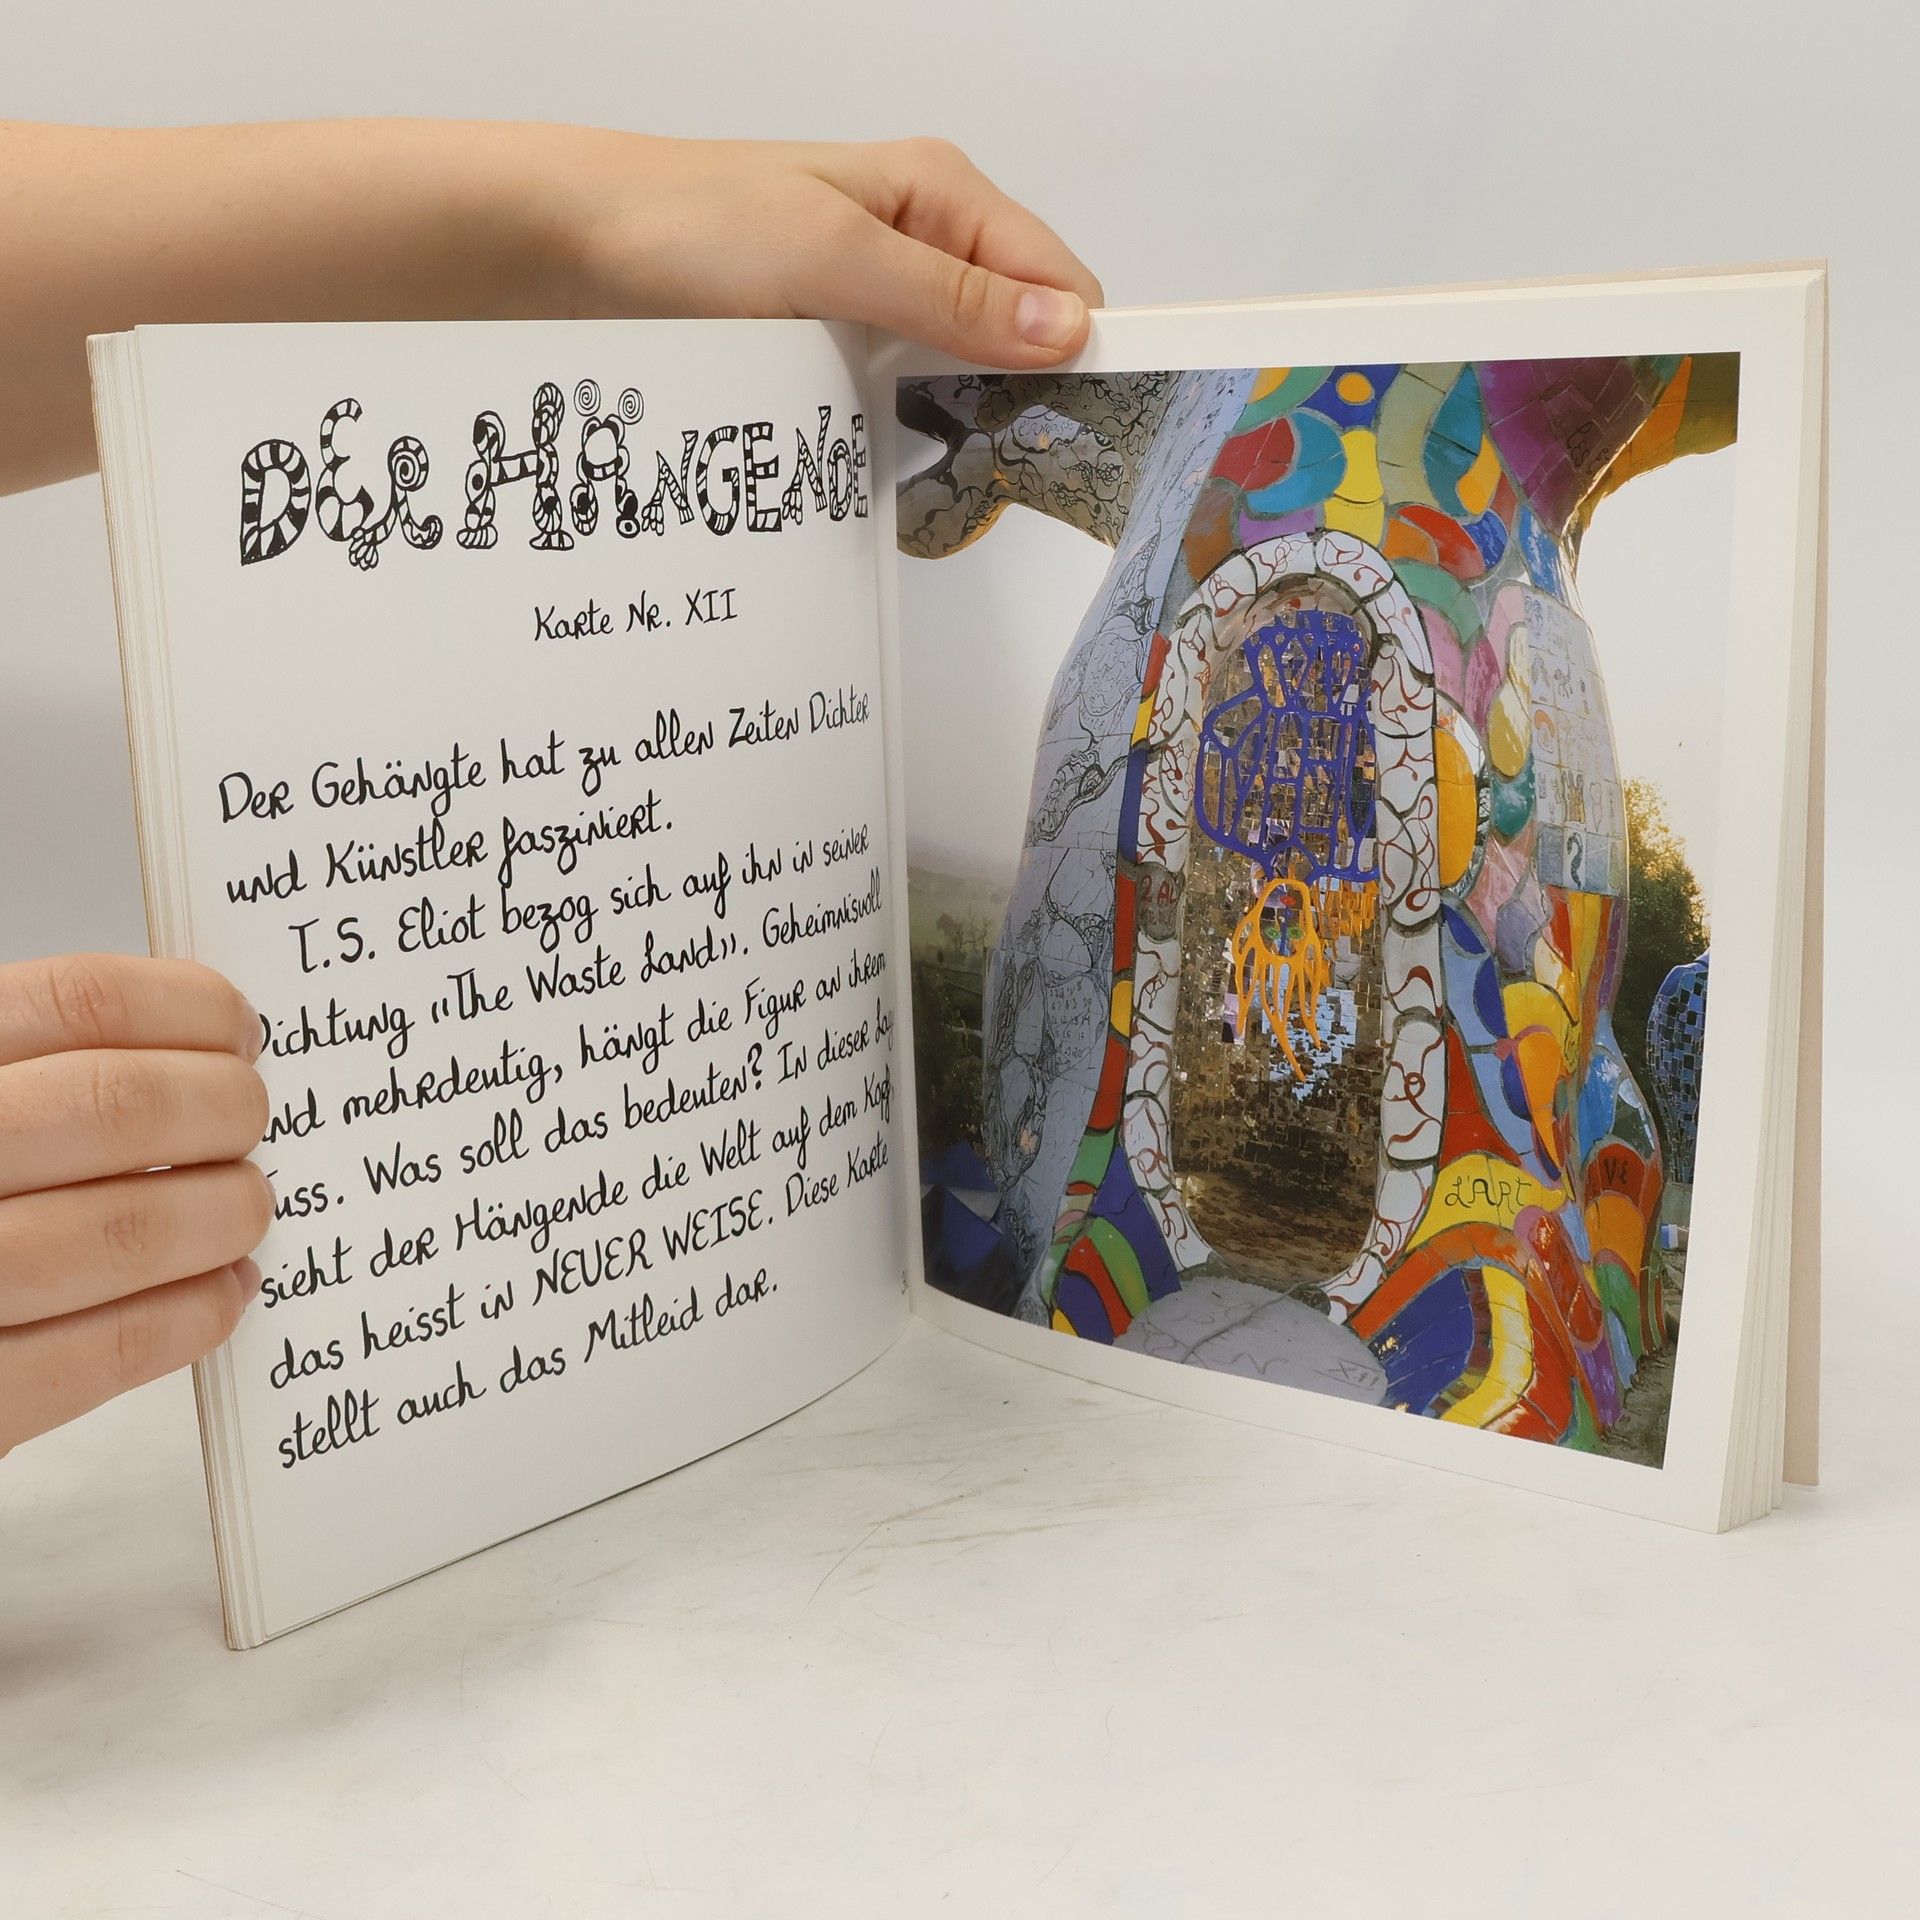 DER HÄNGENDE
Karte Nr. XII
Der Gehängte hat zu allen Zeiten Dichter
und Künstler fasziniert.
T.S. Eliot bezog sich auf ihn in seiner
Dichtung "The Waste Land". Geheimnisvoll
und mehrdeutig, hängt die Figur an ihrem
Fuss. Was soll das bedeuten? In dieser Lage
sieht der Hängende die Welt auf dem Kopf,
das heisst in NEUER WEISE. Diese Karte
stellt auch das Mitleid dar.
L'ART
VE
XII